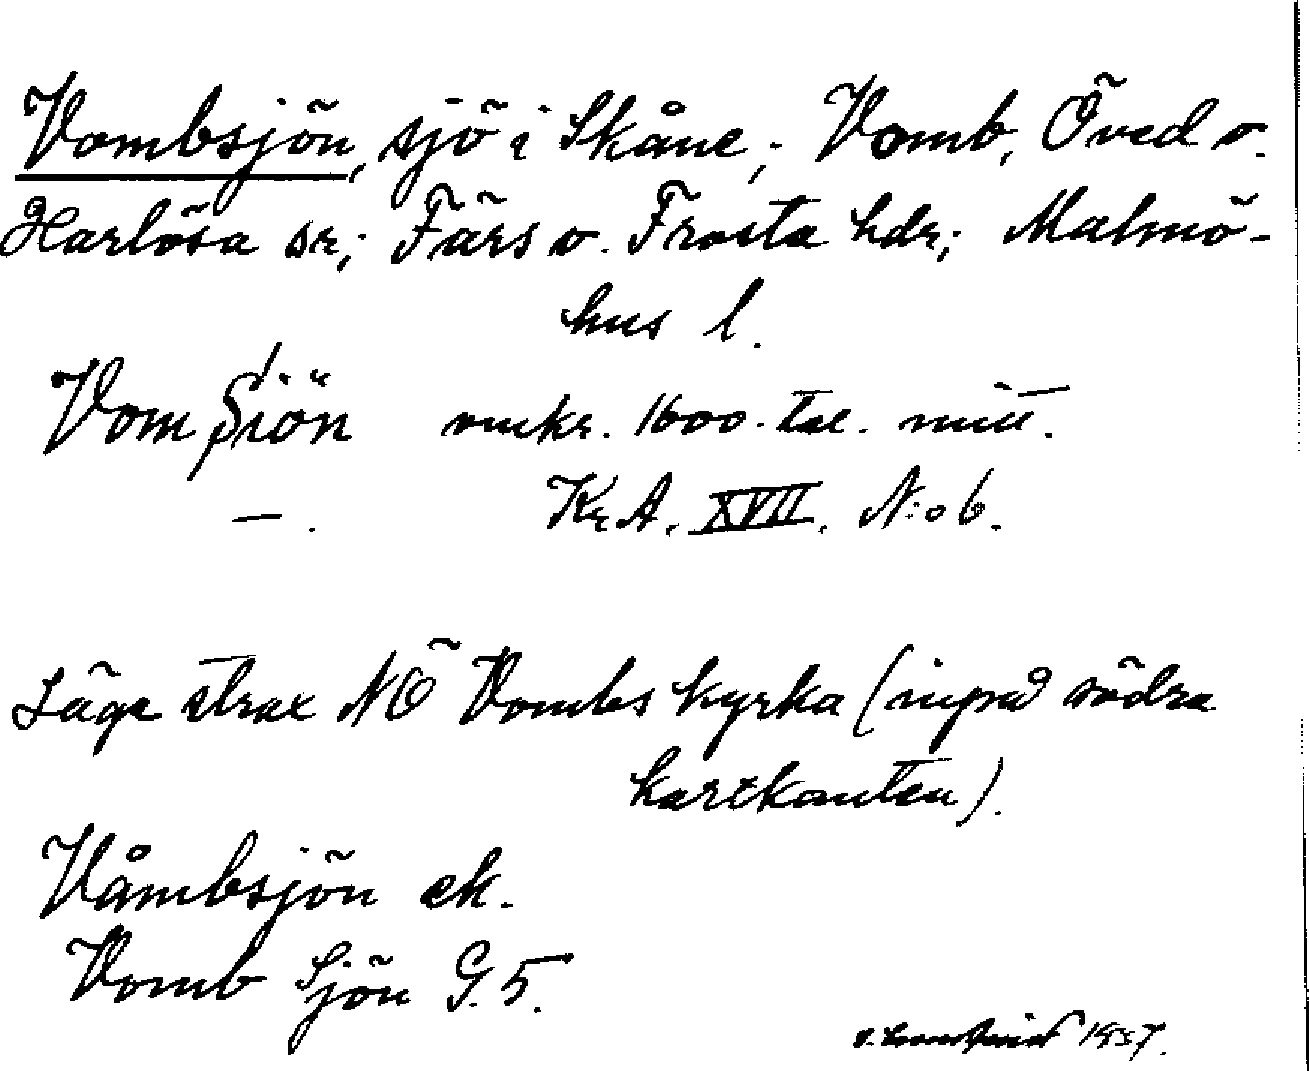 Vombsjön, sjö i Skåne; Vomb, Öved o.
Harlösa sr; Färs o. Frosta hdr; Malmö-
hus l.
Vom Siön omkr. 1600-tal. mitt.
— . Kr.A. XVII. N:o 6.
Läge strax NÖ Vombs kyrka (inpå södra
kartkanten).
Våmbsjön ek.
Vomb Sjön G. 5.
1937.